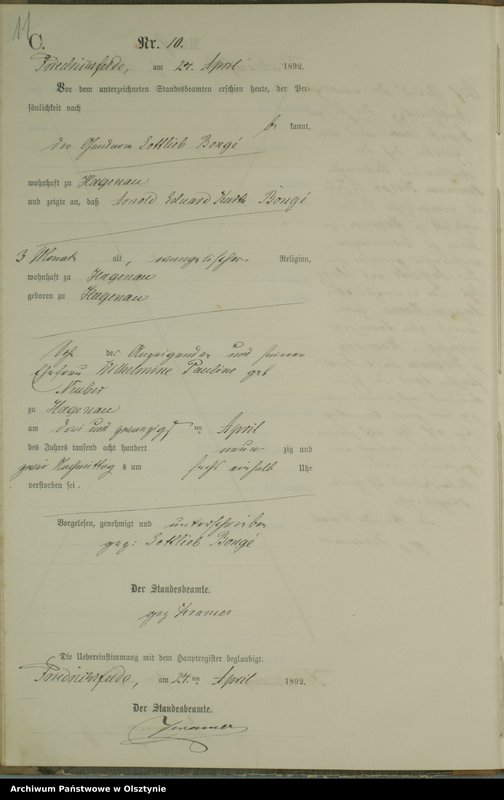 11
C.
Nr. 10.
Friedrichsfelde, am 24. April 1892.
Vor dem unterzeichneten Standesbeamten erschien heute, der Per-
sönlichkeit nach
be kannt,
der Gottlieb Bongé
wohnhaft zu Hagenau
und zeigte an, daß Arnold Eduard Bongé
3 Monate alt, evangelischer Religion,
wohnhaft zu Hagenau
geboren zu Hagenau
Sohn des Anzeigenden und seiner
Ehefrau Wilhelmine Pauline geb
Neuber
zu Hagenau
am drei und zwanzigsten April
des Jahres tausend acht hundert neun zig und
zwei Nachmittags um sechs einhalb Uhr
verstorben sei.
Vorgelesen, genehmigt und unterschrieben
gez: Gottlieb Bongé
Der Standesbeamte.
gez Kramer
Die Uebereinstimmung mit dem Hauptregister beglaubigt.
Friedrichsfelde, am 24.ten April 1892.
Der Standesbeamte.
Kramer
Archiwum Państwowe w Olsztynie